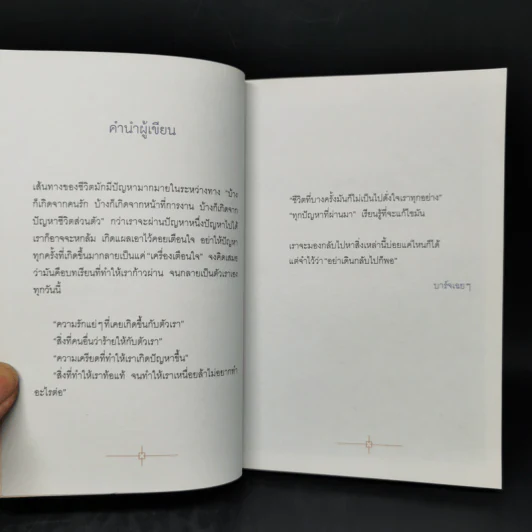 คำนำผู้เขียน
เส้นทางของชีวิตมักมีปัญหามากมายในระหว่างทาง "บ้าง
ก็เกิดจากคนรัก บ้างก็เกิดจากหน้าที่การงาน บ้างก็เกิดจาก
ปัญหาชีวิตส่วนตัว" กว่าเราจะผ่านปัญหาหนึ่งปัญหาไปได้
เราก็อาจจะหกล้ม เกิดแผลเอาไว้คอยเตือนใจ อย่าให้ปัญหา
ทุกครั้งที่เกิดขึ้นมากลายเป็นแค่ "เครื่องเตือนใจ" จงคิดเสมอ
ว่ามันคือบทเรียนที่ทำให้เราก้าวผ่าน จนกลายเป็นตัวเราเอง
ทุกวันนี้
"ความรักแย่ๆ ที่เคยเกิดขึ้นกับตัวเรา"
"สิ่งที่คนอื่นว่าร้ายให้กับตัวเรา"
"ความเครียดที่ทำให้เราเกิดปัญหาขึ้น"
"สิ่งที่ทำให้เราท้อแท้ จนทำให้เราเหนื่อยล้าไม่อยากทำ
อะไรต่อ"
"ชีวิตที่บางครั้งมันก็ไม่เป็นไปดั่งใจเราทุกอย่าง"
"ทุกปัญหาที่ผ่านมา" เรียนรู้ที่จะแก้ไขมัน
เราจะมองกลับไปหาสิ่งเหล่านี้บ่อยแค่ไหนก็ได้
แต่จำไว้ว่า "อย่าเดินกลับไปก็พอ"